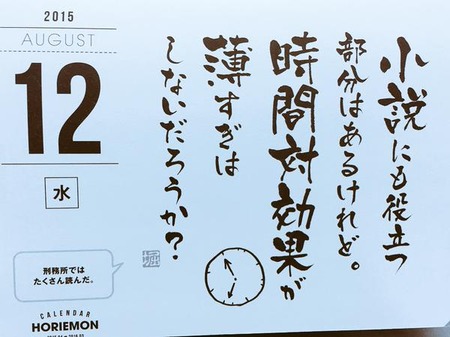 2015
AUGUST
12
水
小説にも役立つ
部分はあるけれど。
時間対効果が
薄すぎは
しないだろうか？
刑務所では
たくさん読んだ。
CALENDAR
HORIEMON